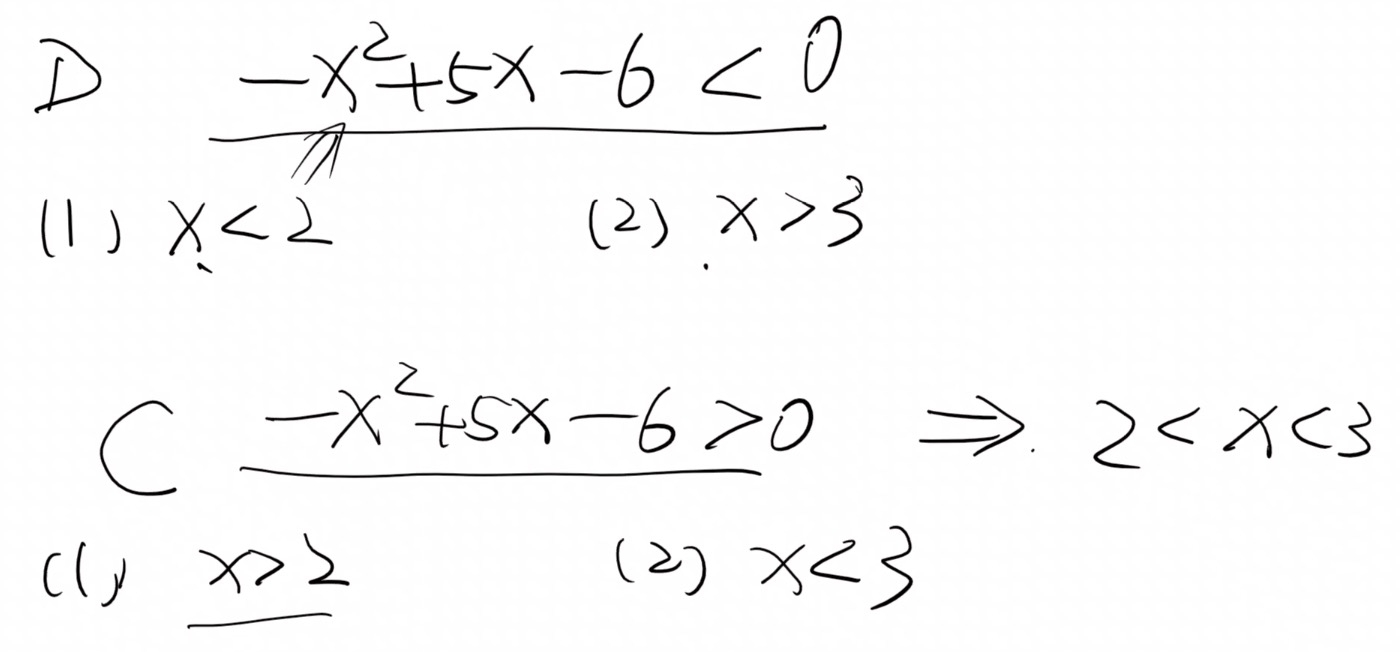 D -x²+5x-6<0
(1) x<2 (2) x>3
C -x²+5x-6>0 ⇒ 2<x<3
(1) x>2 (2) x<3